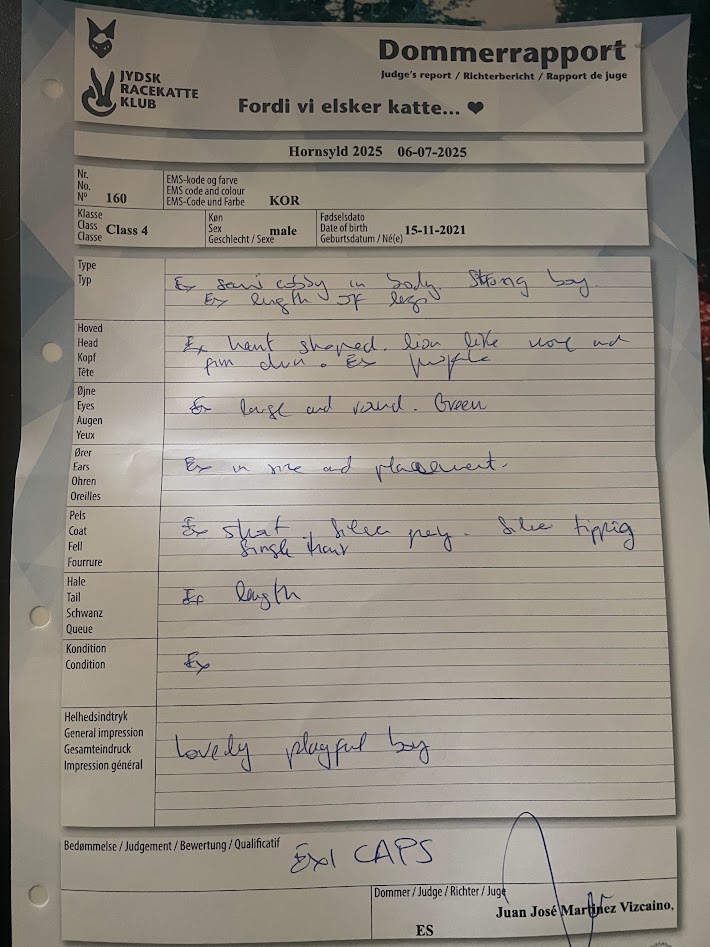 JYDSK
RACEKATTE
KLUB
Dommerrapport
Judge's report / Richterbericht / Rapport de juge
Fordi vi elsker katte... ❤
Hornsyld 2025 06-07-2025
Nr.
No.
N° 160
EMS-kode og farve
EMS code and colour
EMS-Code und Farbe KOR
Klasse
Class
Classe Class 4
Køn
Sex
Geschlecht / Sexe male
Fødselsdato
Date of birth
Geburtsdatum / Né(e) 15-11-2021
Type
Typ
Ex semi cobby in body. Strong boy.
Ex length of legs
Hoved
Head
Kopf
Tête
Ex heart shaped. lion like nose and
firm chin. Ex profile
Øjne
Eyes
Augen
Yeux
Ex large and round. Green
Ører
Ears
Ohren
Oreilles
Ex in size and placement.
Pels
Coat
Fell
Fourrure
Ex short. Silver grey. Silver tipping
Single
Hale
Tail
Schwanz
Queue
Ex length
Kondition
Condition
Ex
Helhedsindtryk
General impression
Gesamteindruck
Impression général
Lovely playful boy
Bedømmelse / Judgement / Bewertung / Qualificatif
Ex1 CAPS
Dommer / Judge / Richter / Juge
Juan José Martinez Vizcaino,
ES